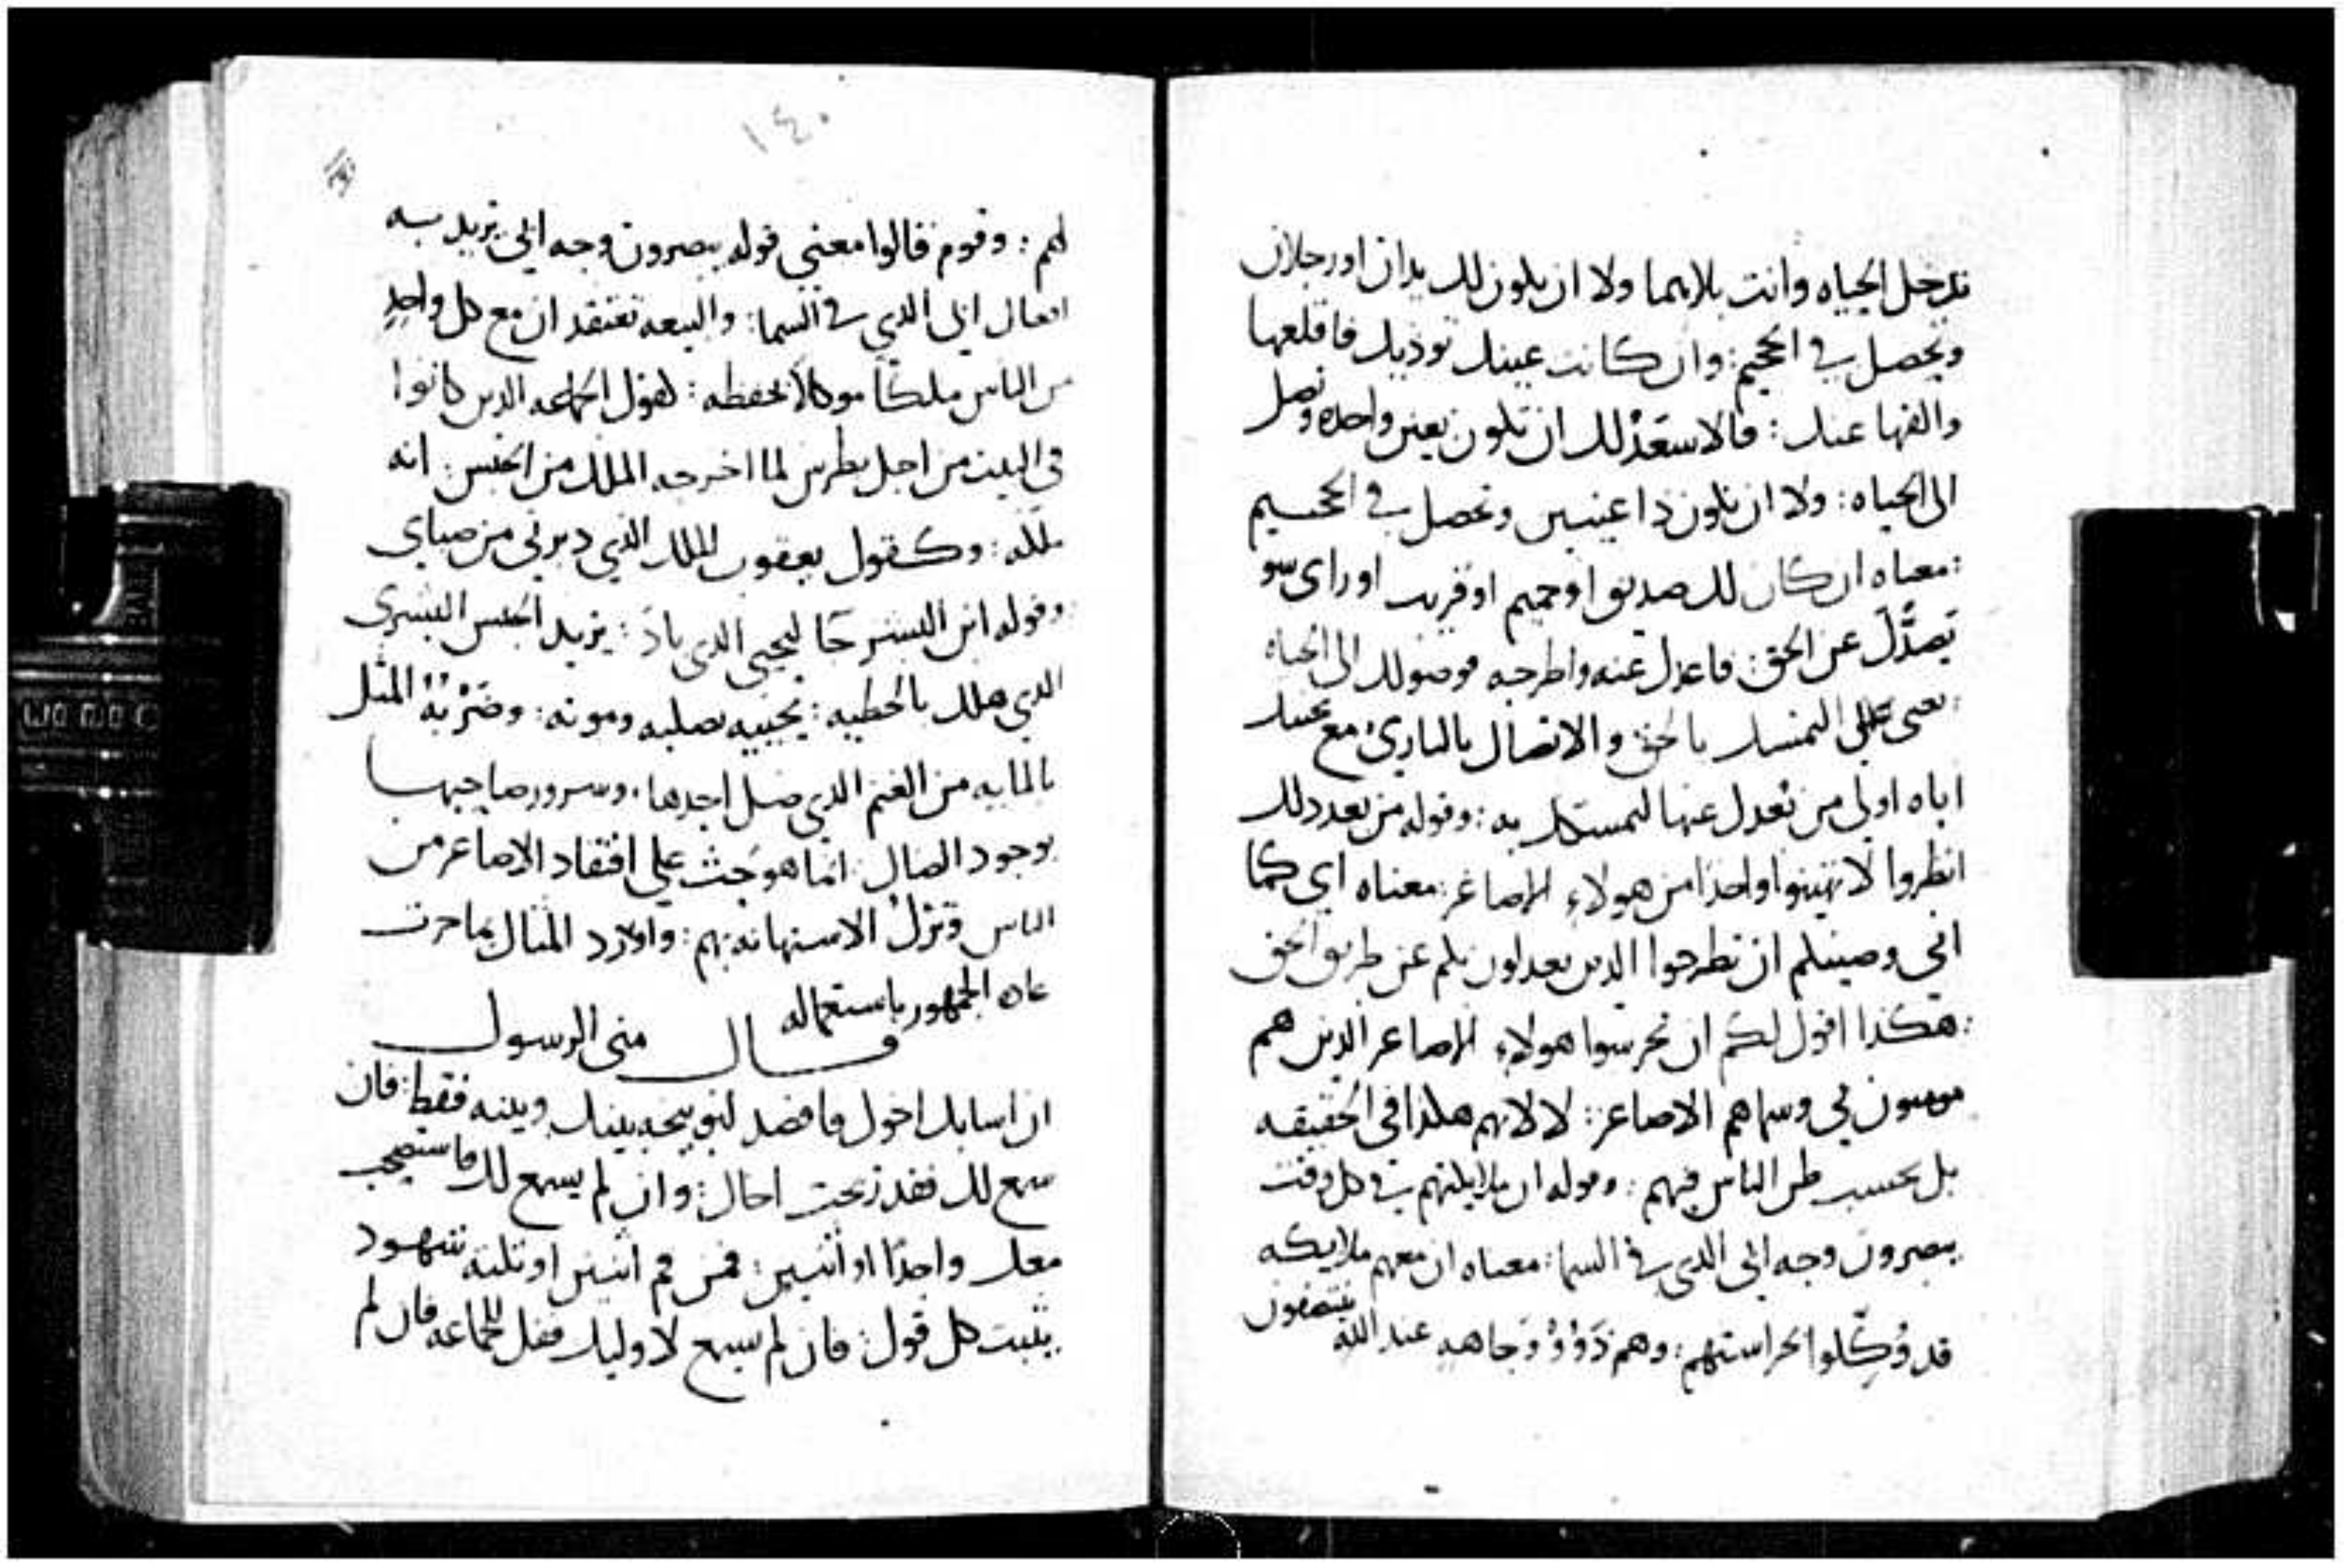 تدخل الحياه وانت بلاهما ولا ان يكون لك يدان او رجلان
وتحصل في الجحيم: وان كانت عينك توذيك فاقلعها
والقها عنك: فالاسعد لك ان تكون بعين واحده وتصل
الى الحياه: ولا ان تكون ذا عينين وتحصل في الجحيم
: معناه ان كان لك صديق او حميم او قريب او راى سو
يصدك عن الحق: فاعدل عنه واطرحه فوصولك الى الحياه
: يعني على التمسك بالحق والاتصال بالبارئ مع
اياه اولى من تعدل عنها لتمسكك به: وقوله من بعد ذلك
انظروا لا تهينوا واحدا من هولاء الاصاغر: معناه اي كما
انني وصيتكم ان تطرحوا الدين يعدلون بكم عن طريق الحق
: هكذا اقول لكم ان تحرسوا هولاء الاصاعر الدين هم
مومنون بي وسماهم الاصاعر: لا لانهم هكذا في الحقيقه
بل بحسب ظن الناس فيهم: وقوله ان ملايكتهم في كل وقت
يبصرون وجه ابي الدي في السما: معناه ان معهم ملايكه
قد وُكِّلوا بحراستهم: وهم ذَوُوْ وَجاهه عند الله
١٤٠
لهم: وقوم قالوا معنى قوله يبصرون وجه ابي يريد به
افعال ابي الدي في السما: والبيعه تعتقد ان مع كل واحدٍ
من الناس ملكًا موكلاً بحفظه: لقول الجماعه الدين كانوا
في البيت من اجل بطرس لما اخرجه الملك من الحبس: انه
ملكه: وكقول يعقوب الملك الذي دبرني من صباي
: وقوله ابن البشر جا ليحيي الدي باد: يريد الجنس البشرى
الدي هلك بالخطيه: يحييه بصلبه وموته: وضَرْبُهُ المثل
بالمايه من الغنم الدي ضل احدها. وسرور صاحبها
بوجود الضال: انما هو حث علي افتقاد الاصاعر من
الناس وتركُ الاستهانه بهم: واورد المثال بما جرت
عاده الجمهور باستعماله
قال متى الرسول
ان اسا بك اخوك فامضه لتوبيخه بينك وبينه فقط: فان
سمع لك فقد ربحت اخاك: وان لم يسمع لك فاستصحب
معك واحدًا او اثنين: فمن فم اثنين او تلته شهود
يثبت كل قول: فان لم يسمع لاوليك فقل للجماعه فان لم